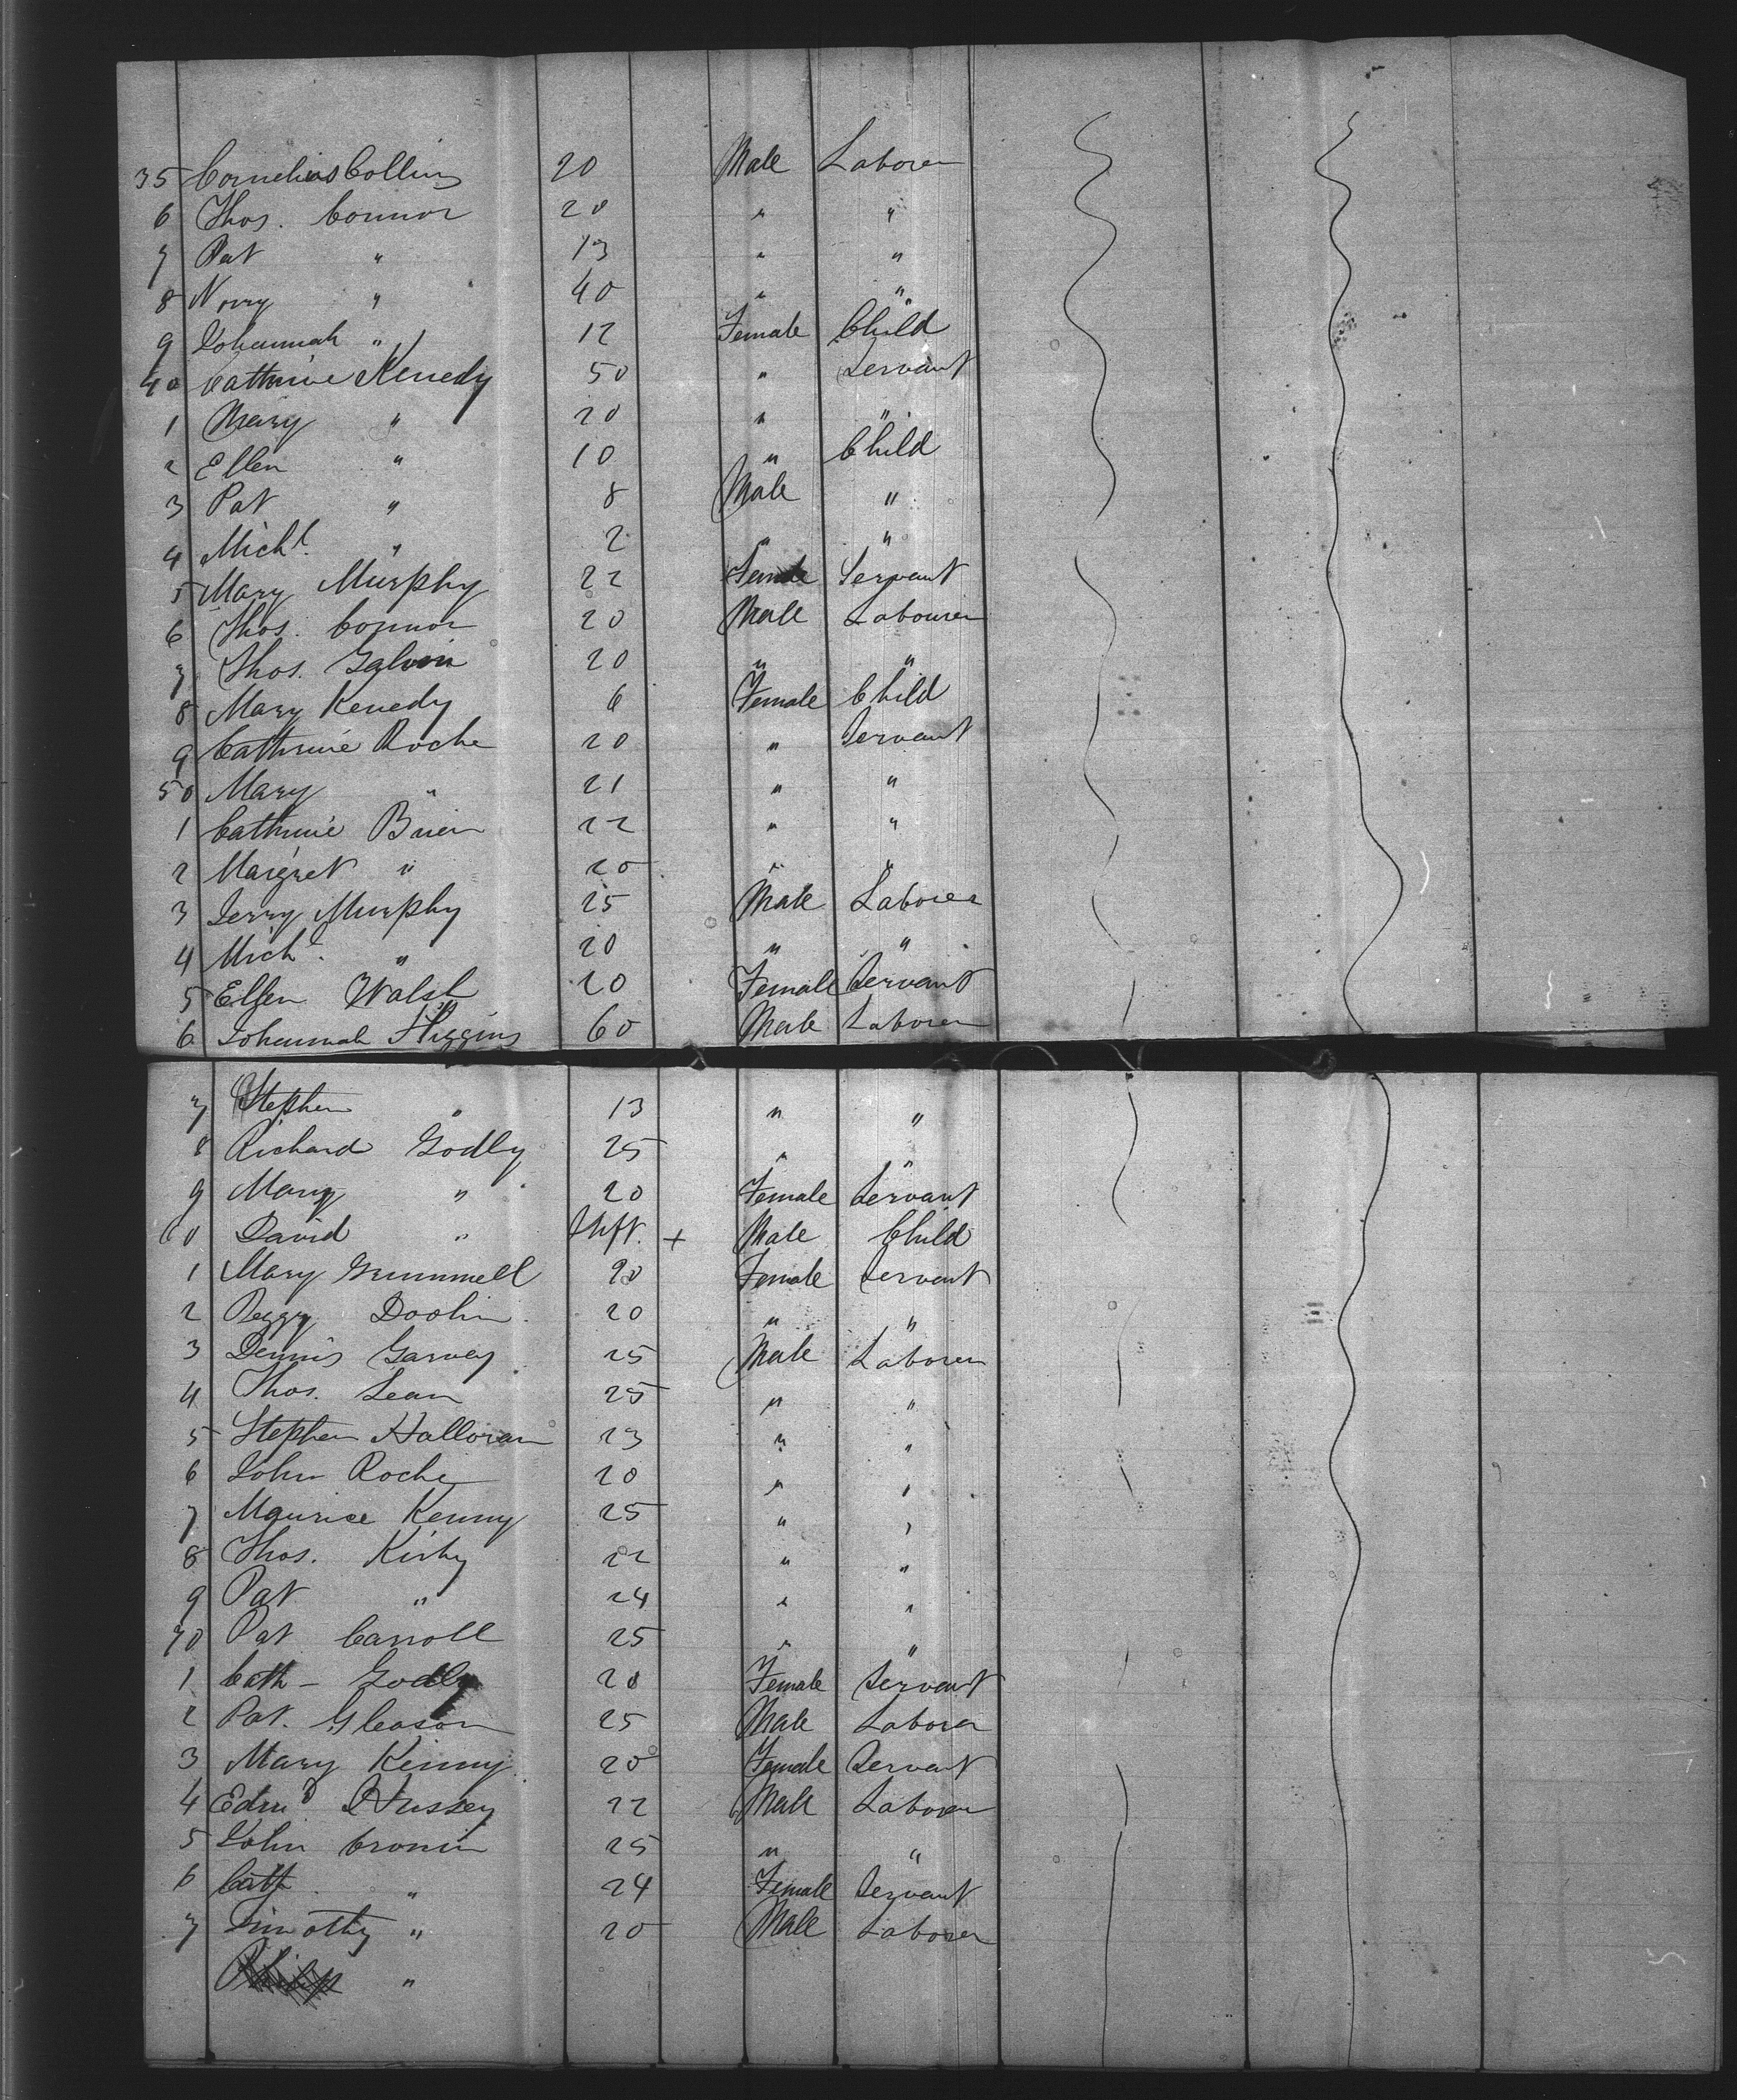 35 Cornelius Collins 20 Male Laborer
6 Thos. Connor 20 " "
7 Pat " 13 " "
8 Nory " 40 " "
9 Johannah " 12 Female Child
40 Cathrine Kenedy 50 " Servant
1 Mary " 20 " "
2 Ellen " 10 " Child
3 Pat " 8 Male "
4 Michl. " 2 " "
5 Mary Murphy 22 Female Servant
6 Thos. Connor 20 Male Labourer
7 Thos. Galvin 20 " "
8 Mary Kenedy 6 Female Child
9 Cathrine Roche 20 " Servant
50 Mary " 21 " "
1 Cathrine Brien 22 " "
2 Margret " 20 " "
3 Jerry Murphy 25 Male Laborer
4 Michl. " 20 " "
5 Ellen Walsh 20 Female Servant
6 Johannah Higgins 60 Male Laborer
7 Stephen " 13 " "
8 Richard Godly 25 " "
9 Mary " 20 Female Servant
60 David " Inft. + Male Child
1 Mary Grummell 20 Female Servant
2 Peggy Doolin 20 " "
3 Dennis Garvey 25 Male Laborer
4 Thos. Lean 25 " "
5 Stephen Halloran 23 " "
6 John Roche 20 " "
7 Maurice Kenny 25 " "
8 Thos. Kirby 22 " "
9 Pat " 24 " "
70 Pat Carroll 25 " "
1 Cath - Godly 20 Female Servant
2 Pat. Gleason 25 Male Laborer
3 Mary Kenny 20 Female Servant
4 Edmd Hussey 22 Male Laborer
5 John Cronin 25 " "
6 Cath. " 24 Female Servant
7 Timothy " 20 Male Laborer
Philip "